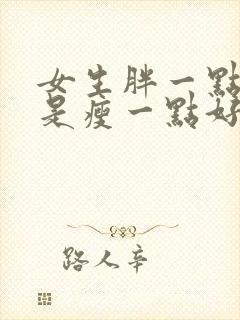 女生胖一點
是瘦一點好
路人辛